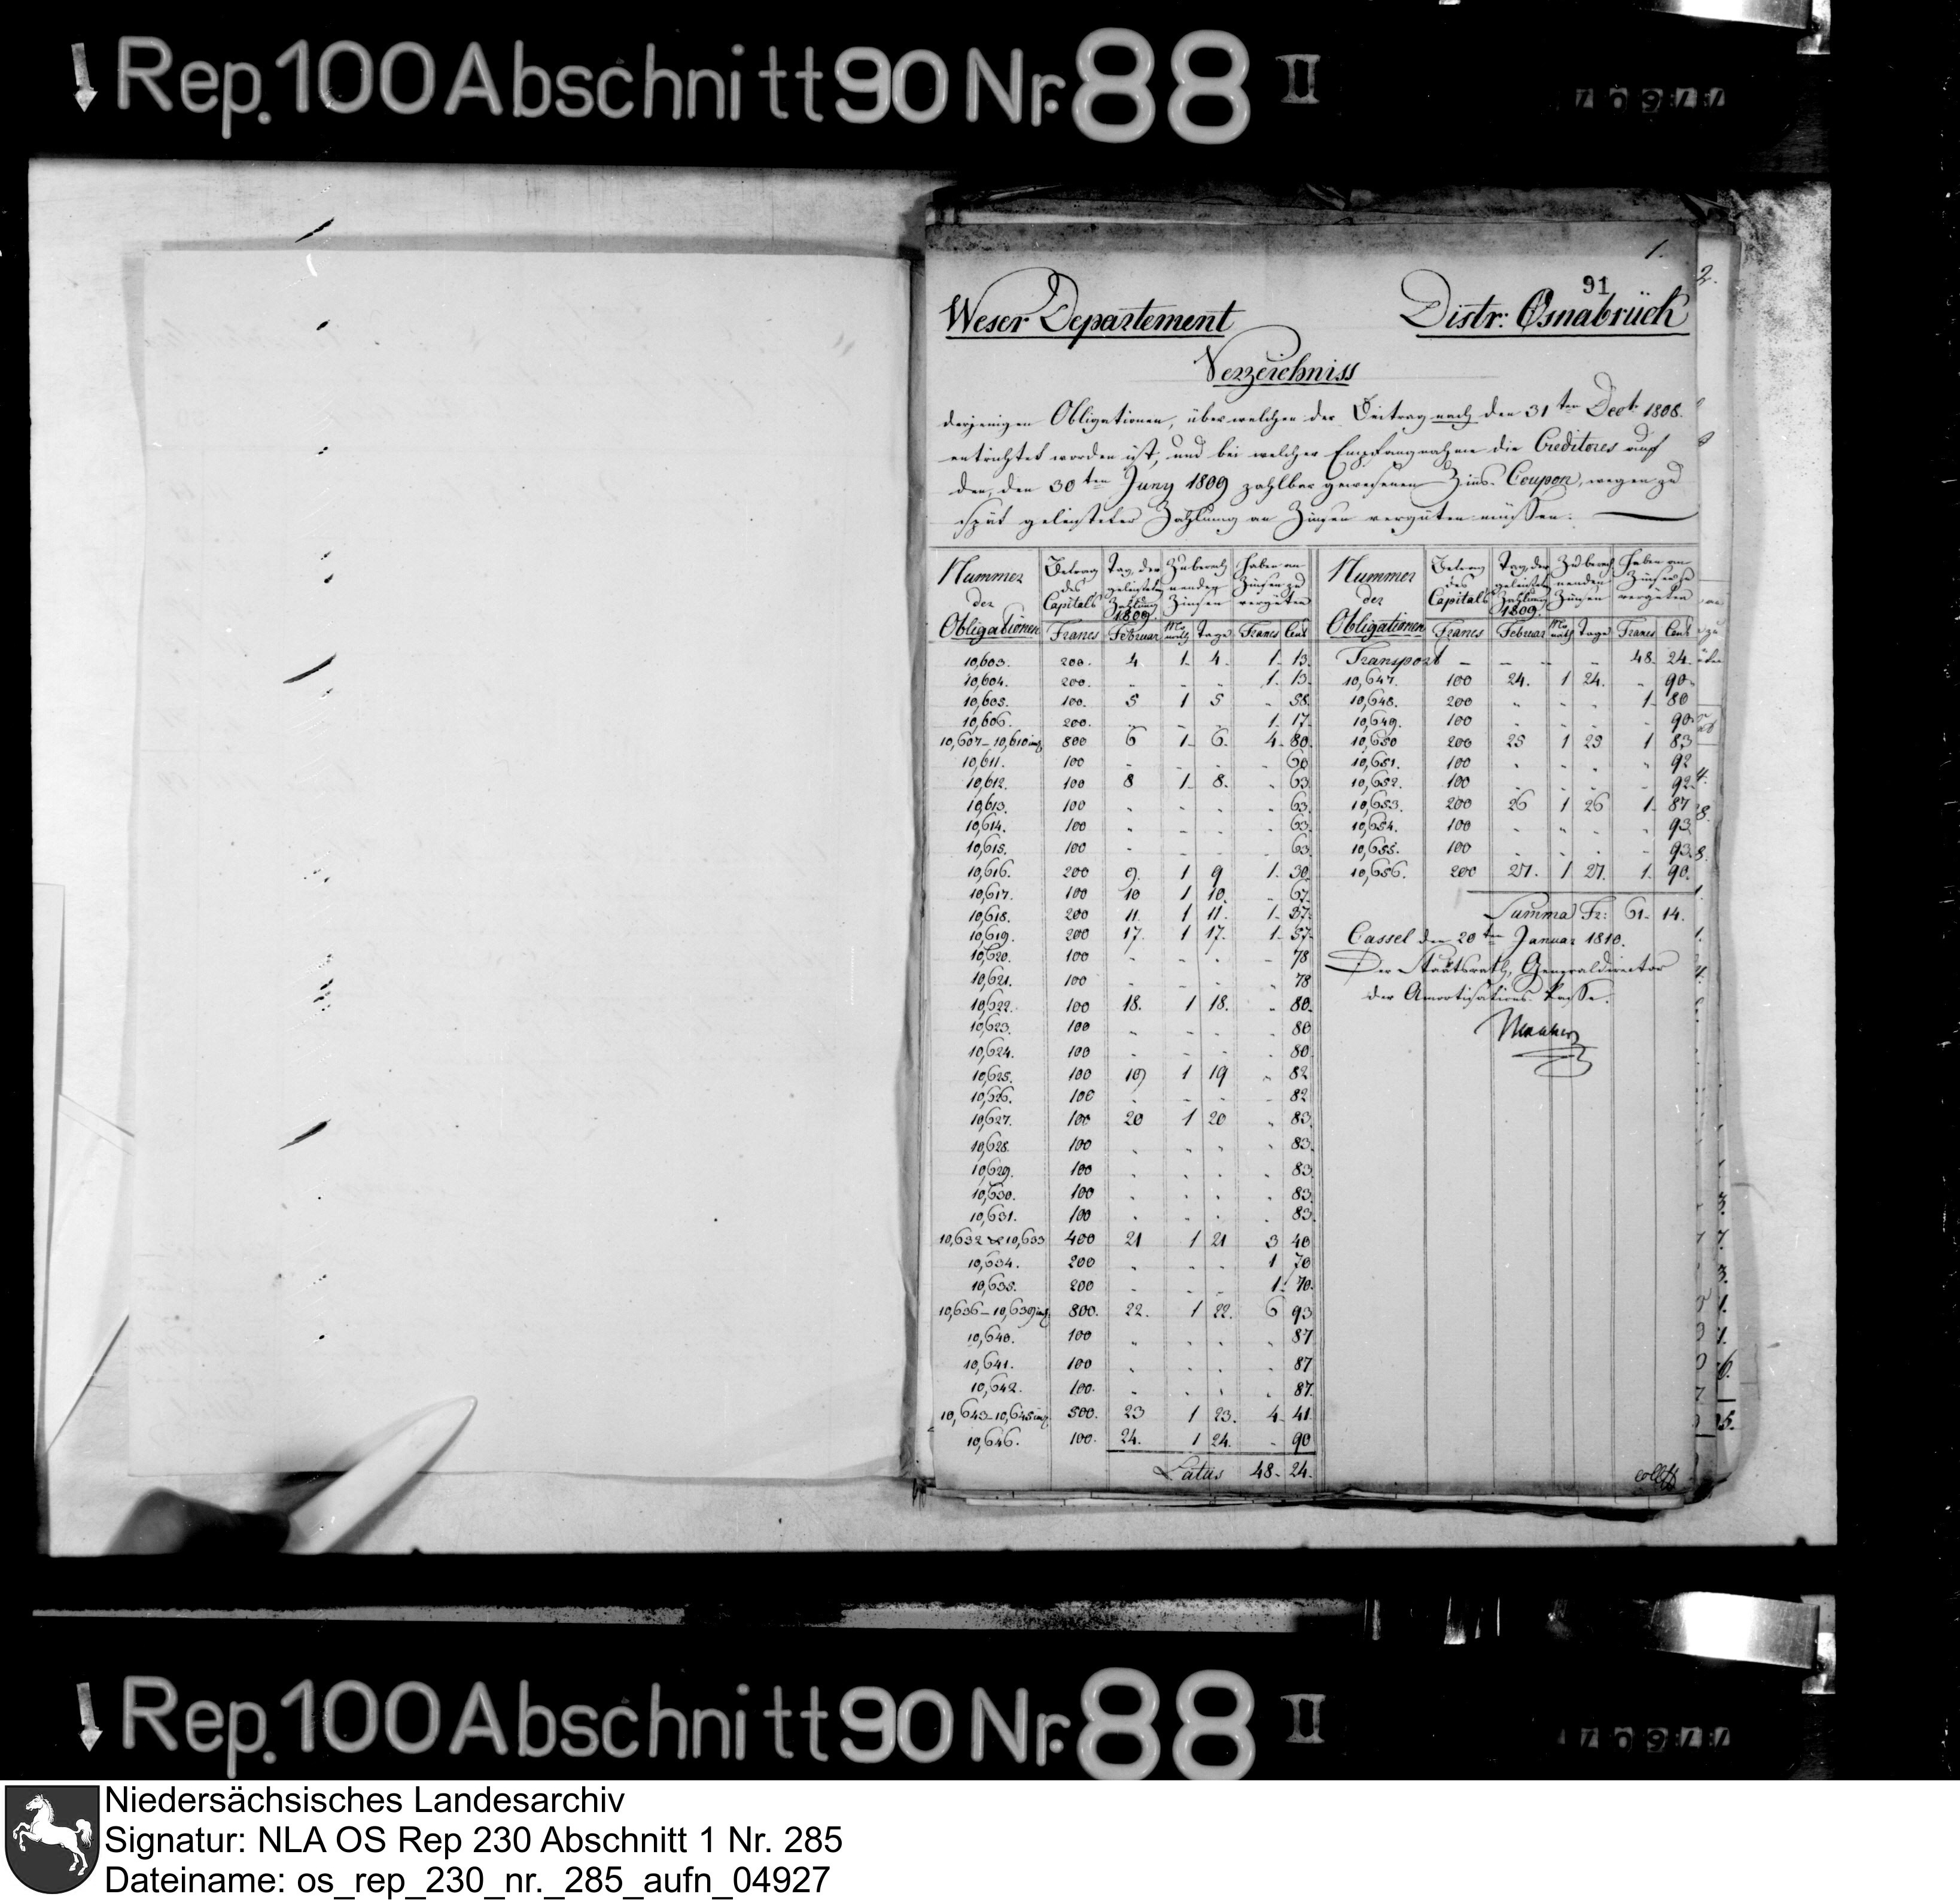 Rep. 100 Abschnitt 90 Nr. 88 II
1.
91
2.
Weser Departement Distr: Osnabrück
Verzeichniss
derjenigen Obligationen, über welchen der Beitrag nach den 31ten Decbr 1808.
entrichtet worden ist, und bei welcher Empfangnahme die Creditores auf
den, den 30ten Juny 1809 zahlbar gewesenen Zins-Coupon, wegen zu
spät geleisteter Zahlung an Zinsen vergüten müssen.
Nummer der Obligationen | Betrag des Capitals Francs | Tag der geleisteten Zahlung 1809. Februar | Zu berechnenden Zinsen Monath Tage | Haben an Zinsen zu vergüten Francs Cent
10,603. 200. 4. 1. 4. 1. 13.
10,604. 200. " " " 1. 13.
10,605. 100. 5 1 5 " 58.
10,606. 200. " " " 1. 17.
10,607-10,610 inc. 800 6 1. 6. 4. 80.
10,611. 100 " " " " 60
10,612. 100 8 1. 8. " 63.
10,613. 100 " " " " 63.
10,614. 100 " " " " 63.
10,615. 100 " " " " 63.
10,616. 200 9. 1 9 1. 30.
10,617. 100 10 1 10. " 67.
10,618. 200 11. 1 11. 1. 37.
10,619. 200 17. 1 17. 1. 57.
10,620. 100 " " " " 78
10,621. 100 " " " " 78
10,622. 100 18. 1 18. " 80.
10,623. 100 " " " " 80
10,624. 100 " " " " 80.
10,625. 100 19 1 19 " 82
10,626. 100 " " " " 82
10,627. 100 20 1 20 " 83.
10,628. 100 " " " " 83.
10,629. 100 " " " " 83.
10,630. 100 " " " " 83.
10,631. 100 " " " " 83.
10,632 & 10,633 400 21 1 21 3 40
10,634. 200 " " " 1 70
10,635. 200 " " " 1. 70.
10,636-10,639 inc. 800. 22. 1 22. 6 93
10,640. 100 " " " " 87
10,641. 100 " " " " 87
10,642. 100. " " " " 87.
10,643-10,645 inc. 500. 23 1 23. 4. 41.
10,646. 100. 24. 1 24. " 90
Latus 48. 24.
Nummer der Obligationen | Betrag des Capitals Francs | Tag der geleisteten Zahlung 1809 Februar | Zu berechnenden Zinsen Monath Tage | Haben an Zinsen zu vergüten Francs Cent
Transport – – – – 48. 24.
10,647. 100 24. 1 24. " 90.
10,648. 200 " " " 1. 80
10,649. 100 " " " " 90.
10,650 200 25 1 25 1 83
10,651. 100 " " " " 92
10,652. 100 " " " " 92.
10,653. 200 26 1 26 1. 87
10,654. 100 " " " " 93.
10,655. 100 " " " " 93.
10,656. 200 27. 1 27. 1. 90.
Summa Fr: 61. 14.
Cassel den 20ten Januar 1810.
Der Staatsrath, Generaldirector
der Amortisations-Kasse.
Rep. 100 Abschnitt 90 Nr. 88 II
Niedersächsisches Landesarchiv
Signatur: NLA OS Rep 230 Abschnitt 1 Nr. 285
Dateiname: os_rep_230_nr._285_aufn_04927